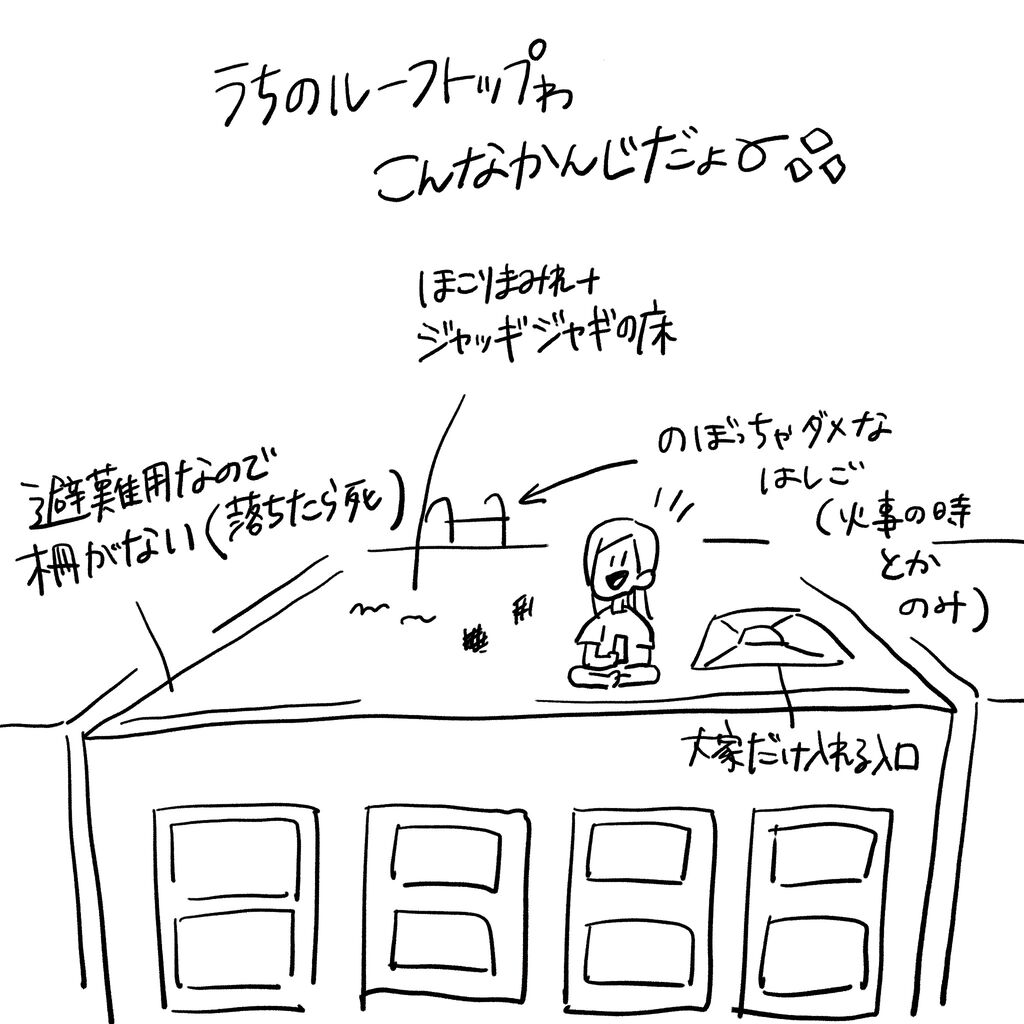 うちのルーフトップわ
こんなかんじだよ
ほこりまみれ+
ジャッギジャギの床
のぼっちゃダメな
はしご
(火事の時
とか
のみ)
避難用なので
柵がない(落ちたら死)
大家だけ入れる入口